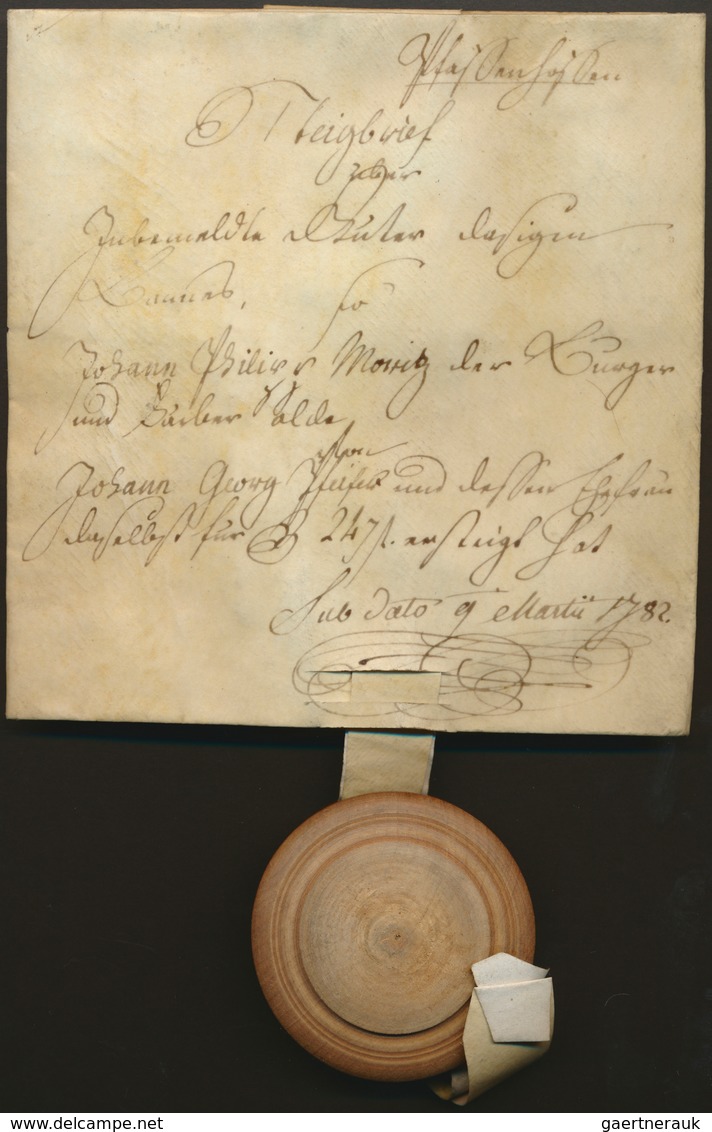 Pfaffenhoffen
Steigbrief
über
Inbemeldte Güter dasigen
Bannes, so
Johann Philipp Moritz der Burger
und Färber alda,
von
Johann Georg Pfeifer und dessen Ehefrau
daselbst für 247 f. ersteigt hat
Sub dato 9 Martii 1782.
www.delcampe.net
gaertnerauk